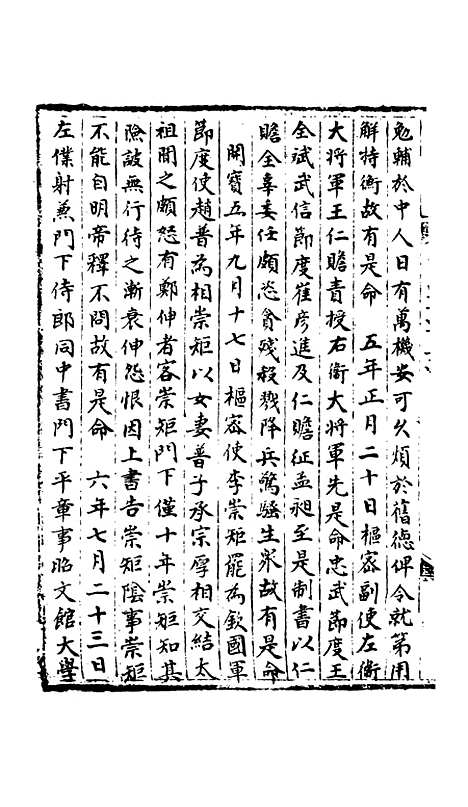 勉輔於中人日有萬機安可久煩於舊德俾令就第用
解特衡故有是命　五年正月二十日樞密副使左衛
大將軍王仁贍責授右衛大將軍先是命忠武節度王
全斌武信節度崔彦進及仁贍征孟昶至是制書以仁
贍全辜委任頗恣貪殘殺戮降兵驚騷生衆故有是命
開寶五年九月十七日樞密使李崇矩罷為鎮國軍
節度使趙普為相崇矩以女妻普子承宗厚相交結太
祖聞之頗怒有鄭伸者客崇矩門下僅十年崇矩知其
險詖無行待之漸衰伸怨恨因上書告崇矩陰事崇矩
不能自明帝釋不問故有是命　六年七月二十三日
左僕射兼門下侍郎同中書門下平章事昭文館大學